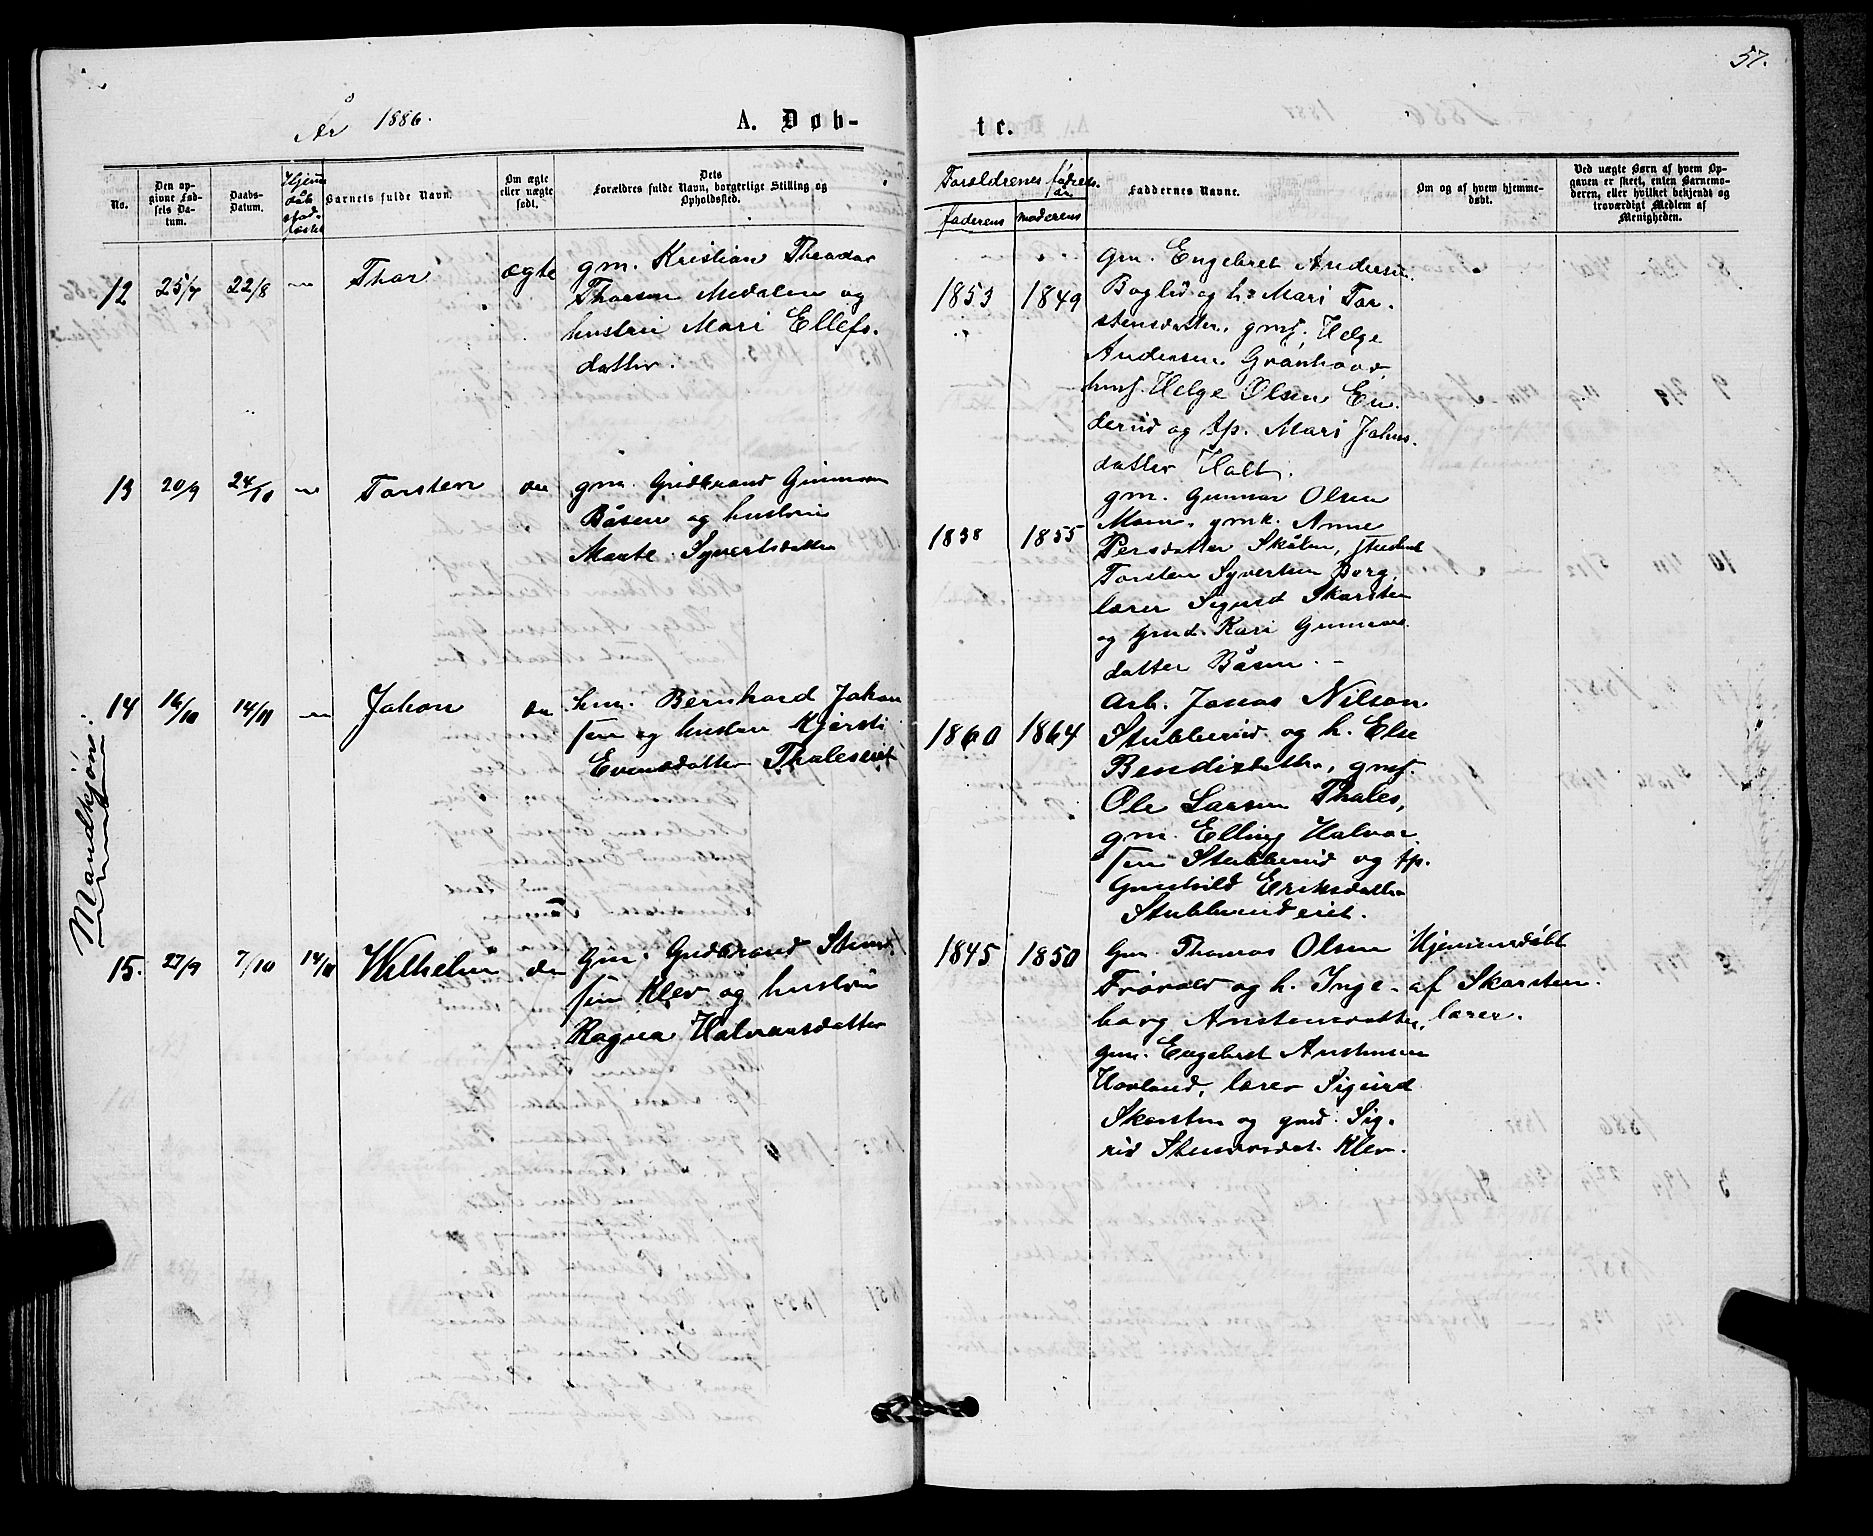 57.
År 1886.
A. Døb-
te.
No.
Den op-
givne Fød-
sels Da-
tum.
Daabs-
Datum.
Hjemme
døb
stad-
fæstet
Barnets fulde Navn.
Om ægte
eller uægte
født.
Dets
Forældres fulde Navn, borgerlige Stilling og
Opholdssted.
Forældrenes fødsels-
aar
faderens
moderens
Faddernes Navne.
Om og af hvem hjemme-
døbt.
Ved uægte Børn af hvem Op-
gaven er skeet, enten Barnemo-
deren, eller hvilket bekjendt og
troværdigt Medlem af
Menigheden.
Mandkjøn:
12 25/7 22/8 Thor ægte
gm. Kristian Theodor
Thorsen Medalen og
hustru Mari Ellefs-
datter.
1853 1849
Gm. Engebret Andersen
Boglid og h. Mari Tor-
stensdatter, gmf. Helge
Andersen Grønhovd,
husf. Helge Olsen En-
derud og tp. Mari Johns-
datter Holt.
13 20/9 24/10 Torsten do
gm. Gudbrand Gunnarsen
Båsen og hustru
Marte Syvertsdatter
1838 1855
gm. Gunnar Olsen
Moen, gmk. Anne
Persdatter Skålen, student
Torsten Syvertsen Berg,
lærer Sigurd Skarsten
og gmd. Kari Gunnars-
datter Båsen. -
14 16/10 14/11 Johan do
hm. Bernhard Johan
sen og hustru Kjersti
Evensdatter Thaleseiet
1860 1864
Arb. Jonas Nilsen
Stubberud og h. Else
Bendixdatter, gmf.
Ole Larsen Thales,
gm. Elling Halvor
sen Stubberud og tp.
Gunhild Eriksdatter
Stubberudeiet.
15. 27/9 7/10 14/11 Wilhelm do
Gm. Gudbrand Stener
sen Klev og hustru
Ragna Halvorsdatter
1845 1850
Gm. Thomas Olsen
Frøvold og h. Inge-
borg Anstensdatter,
gm. Engebret Anstensen
Hovland, lærer Sigurd
Skarsten og gmd. Sig-
rid Stenersdat. Klev.
Hjemmedøbt
af Skarsten
lærer.